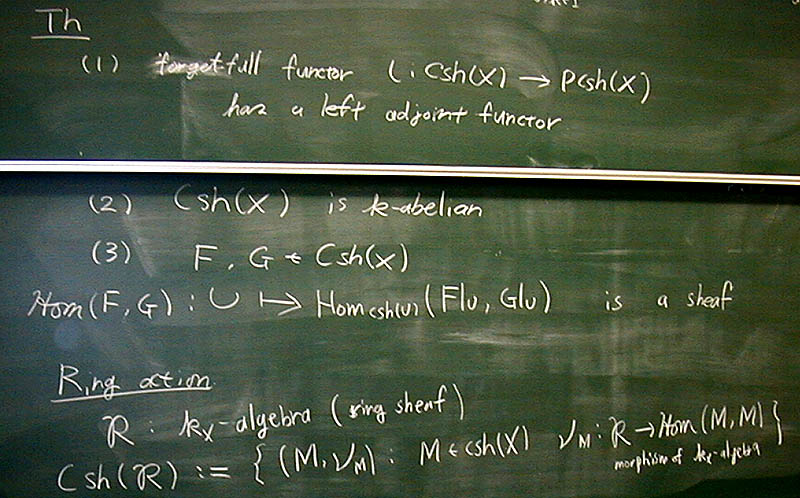 Th
(1) forget-full functor ι : Csh(X) → Pcsh(X)
has a left adjoint functor
(2) Csh(X) is k-abelian
(3) F, G ∈ Csh(X)
Hom(F, G) : U ↦ Hom_Csh(U)(F|_U, G|_U) is a sheaf
Ring action
R : k_X-algebra (ring sheaf)
Csh(R) := { (M, ν_M) : M ∈ Csh(X) ν_M : R → Hom(M, M) }
morphism of k_X-algebra